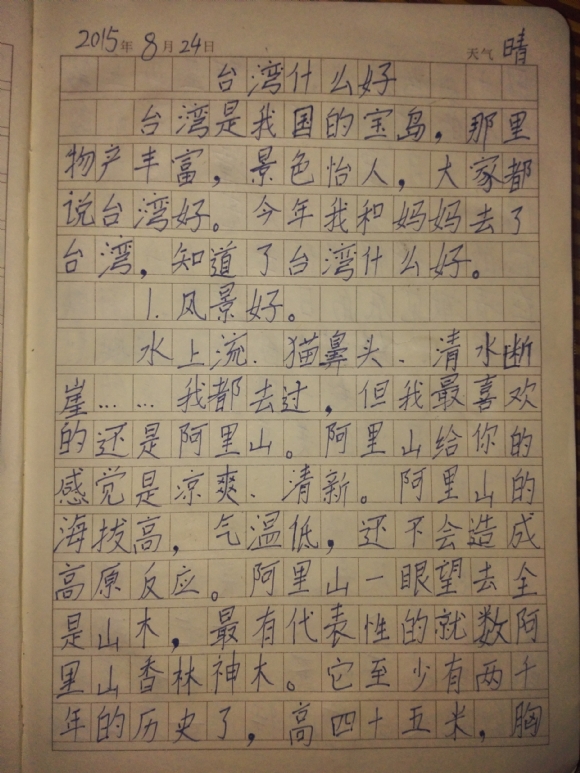 2015年8月24日 天气 晴
台湾什么好
台湾是我国的宝岛，那里
物产丰富，景色怡人，大家都
说台湾好。今年我和妈妈去了
台湾，知道了台湾什么好。
1.风景好。
水上流、猫鼻头、清水断
崖……我都去过，但我最喜欢
的还是阿里山。阿里山给你的
感觉是凉爽、清新。阿里山的
海拔高，气温低，还不会造成
高原反应。阿里山一眼望去全
是山木，最有代表性的就数阿
里山香林神木。它至少有两千
年的历史了，高四十五米，胸